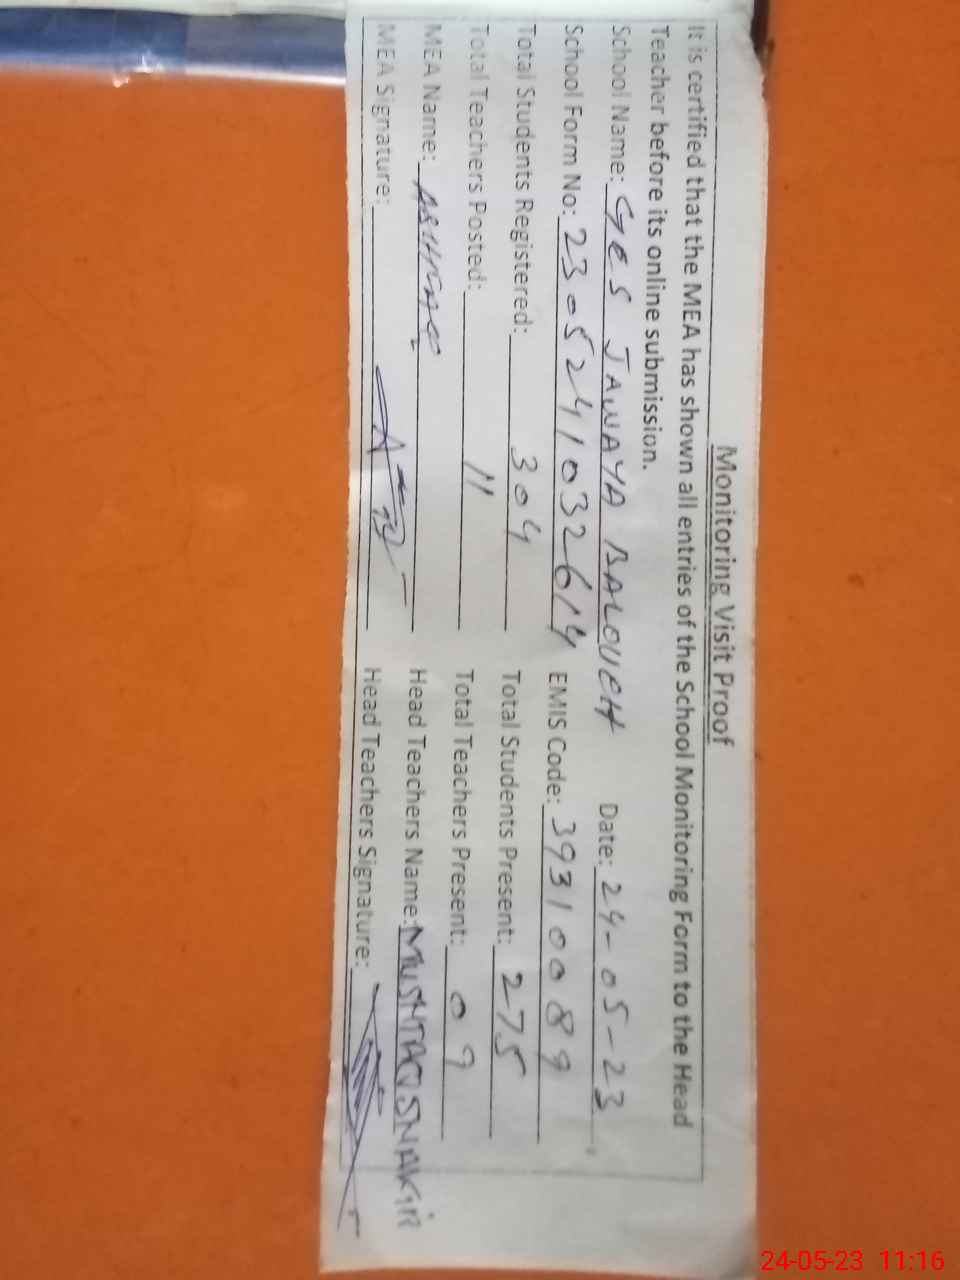 Monitoring Visit Proof
It is certified that the MEA has shown all entries of the School Monitoring Form to the Head
Teacher before its online submission.
School Name: GES JAWAYA BALOUCH Date: 24-05-23
School Form No: 2305241032614 EMIS Code: 39310089
Total Students Registered: 304 Total Students Present: 275
Total Teachers Posted: 11 Total Teachers Present: 09
MEA Name: Head Teachers Name: MUSHTAQ
MEA Signature: Head Teachers Signature:
24-05-23 11:16